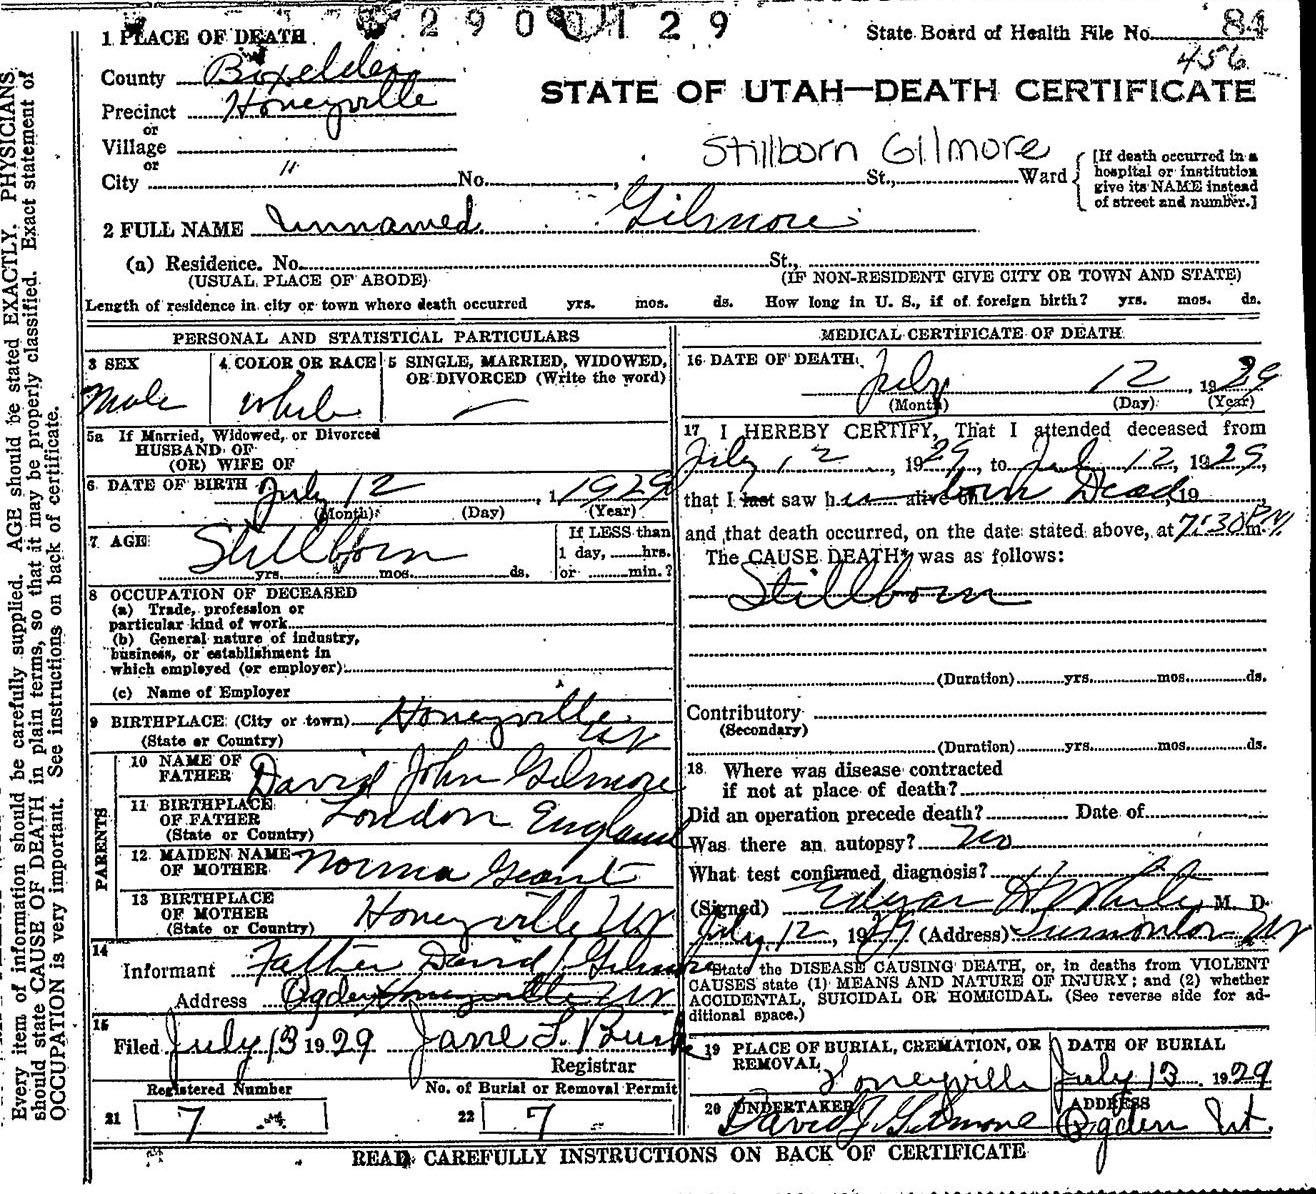 2900129
1 PLACE OF DEATH
State Board of Health File No. 84
456
County Boxelder
Precinct Honeyville
or
Village
or
City " No. , St., Ward
STATE OF UTAH—DEATH CERTIFICATE
Stillborn Gilmore
[If death occurred in a
hospital or institution
give its NAME instead
of street and number.]
2 FULL NAME unnamed Gilmore
(a) Residence. No. St.,
(USUAL PLACE OF ABODE) (IF NON-RESIDENT GIVE CITY OR TOWN AND STATE)
Length of residence in city or town where death occurred yrs. mos. ds. How long in U. S., if of foreign birth? yrs. mos. ds.
PERSONAL AND STATISTICAL PARTICULARS
3 SEX
Male
4 COLOR OR RACE
White
5 SINGLE, MARRIED, WIDOWED,
OR DIVORCED (Write the word)
—
5a If Married, Widowed, or Divorced
HUSBAND OF
(OR) WIFE OF
6 DATE OF BIRTH July 12, 1 1929
(Month) (Day) (Year)
7 AGE Stillborn
yrs. mos. ds.
If LESS than
1 day, hrs.
or min.?
8 OCCUPATION OF DECEASED
(a) Trade, profession or
particular kind of work
(b) General nature of industry,
business, or establishment in
which employed (or employer)
(c) Name of Employer
9 BIRTHPLACE (City or town) Honeyville
(State or Country) Ut
PARENTS
10 NAME OF
FATHER David John Gilmore
11 BIRTHPLACE
OF FATHER London England
(State or Country)
12 MAIDEN NAME
OF MOTHER Norma Grant
13 BIRTHPLACE
OF MOTHER Honeyville Ut
(State or Country)
14
Informant Father David J. Gilmore
Address Ogden Honeyville Ut
15
Filed July 13 1929 Jane L.
Registrar
Registered Number No. of Burial or Removal Permit
21 7 22 7
MEDICAL CERTIFICATE OF DEATH
16 DATE OF DEATH
July 12, 1929
(Month) (Day) (Year)
17 I HEREBY CERTIFY, That I attended deceased from
July 12, 1929, to July 12, 1929,
that I last saw h alive on born Dead, 19
and that death occurred, on the date stated above, at 7:30 P.M. m.
The CAUSE DEATH* was as follows:
Stillborn
(Duration) yrs. mos. ds.
Contributory
(Secondary)
(Duration) yrs. mos. ds.
18 Where was disease contracted
if not at place of death?
Did an operation precede death? Date of
Was there an autopsy? no
What test confirmed diagnosis?
(Signed) Edgar H White, M. D.
July 12, 1929 (Address) Tremonton Ut
*State the DISEASE CAUSING DEATH, or, in deaths from VIOLENT
CAUSES state (1) MEANS AND NATURE OF INJURY; and (2) whether
ACCIDENTAL, SUICIDAL OR HOMICIDAL. (See reverse side for ad-
ditional space.)
19 PLACE OF BURIAL, CREMATION, OR
REMOVAL
Honeyville
DATE OF BURIAL
July 13 1929
20 UNDERTAKER
David J. Gilmore
ADDRESS
Ogden Ut.
READ CAREFULLY INSTRUCTIONS ON BACK OF CERTIFICATE
Every item of information should be carefully supplied. AGE should be stated EXACTLY. PHYSICIANS
should state CAUSE OF DEATH in plain terms, so that it may be properly classified. Exact statement of
OCCUPATION is very important. See instructions on back of certificate.